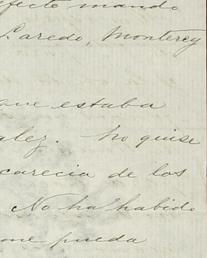 efecto mando
Laredo, Monterey
que estaba
alez. No quise
carecia de los
No ha habido
que pueda